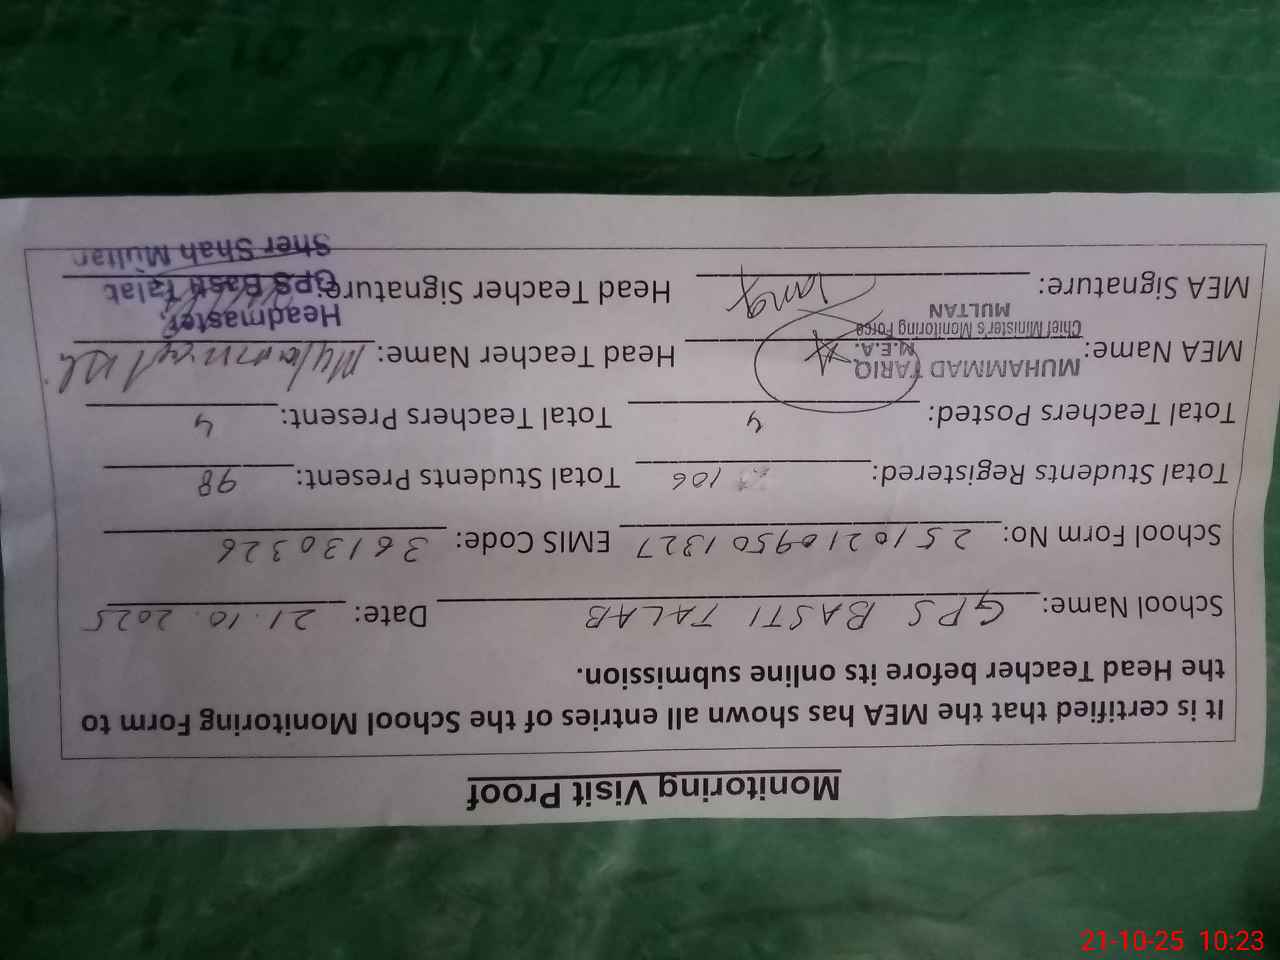 Monitoring Visit Proof
It is certified that the MEA has shown all entries of the School Monitoring Form to
the Head Teacher before its online submission.
School Name: GPS BASTI TALAB Date: 21.10.2025
School Form No: 25102109501327 EMIS Code: 36130326
Total Students Registered: 106 Total Students Present: 98
Total Teachers Posted: 4 Total Teachers Present: 4
MEA Name: MUHAMMAD TARIQ Head Teacher Name: Muhammad
M.E.A.
Chief Minister's Monitoring Force
MULTAN
MEA Signature: Tariq Head Teacher Signature:
Headmaster
GPS Basti Talab
Sher Shah Multan
21-10-25 10:23